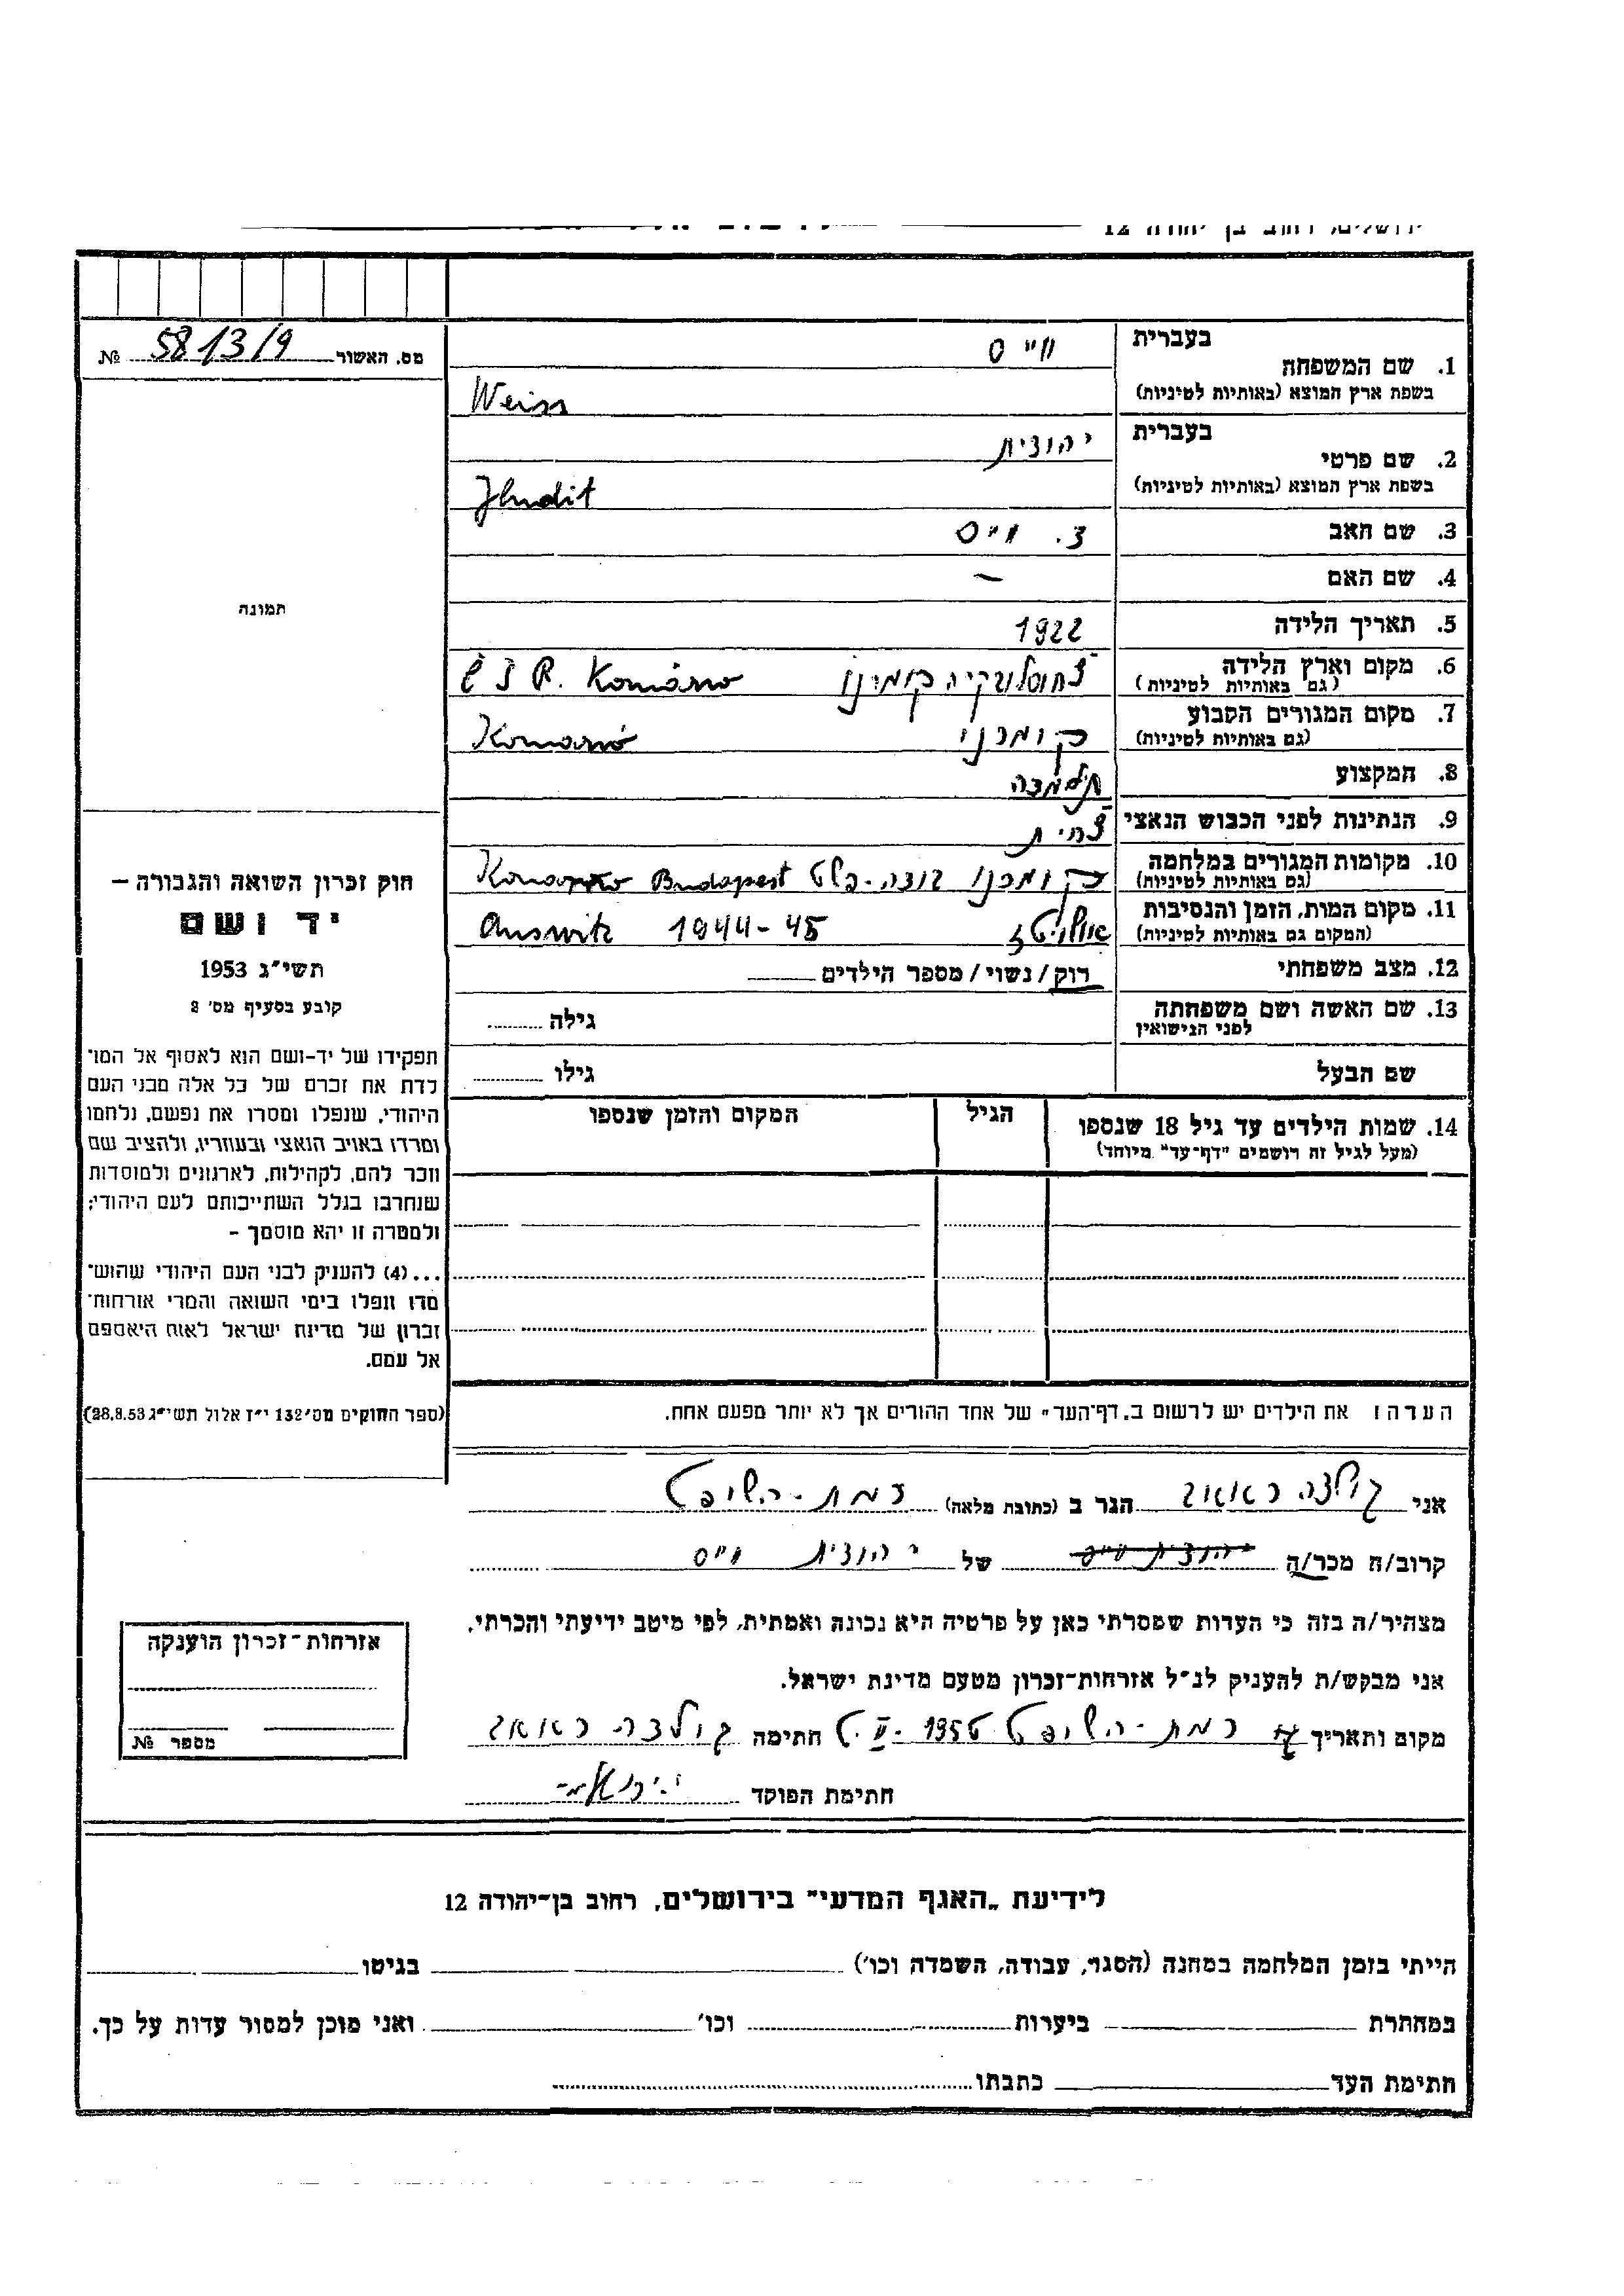 ירושלים, רחוב בן יהודה 12
מס. האשור 58/13/9 №
בעברית
1. שם המשפחה ווייס
בשפת ארץ המוצא (באותיות לטיניות) Weiss
בעברית
2. שם פרטי יהודית
בשפת ארץ המוצא (באותיות לטיניות) Jhudit
3. שם האב ד. ווייס
4. שם האם —
5. תאריך הלידה 1922
6. מקום וארץ הלידה
(גם באותיות לטיניות) Č S R. Komárno
7. מקום המגורים הקבוע
(גם באותיות לטיניות) קומרנו Komarnó
8. המקצוע תלמידה
9. הנתינות לפני הכבוש הנאצי צ'כית
10. מקומות המגורים במלחמה
(גם באותיות לטיניות) קומרנו בודה-פשט Budapest
11. מקום המות, הזמן והנסיבות
(המקום גם באותיות לטיניות) Auswitz 1944-45
12. מצב משפחתי רוק/נשוי/מספר הילדים
13. שם האשה ושם משפחתה
לפני הנישואין גילה
שם הבעל גילו
14. שמות הילדים עד גיל 18 שנספו הגיל המקום והזמן שנספו
(מעל לגיל זה רושמים "דף-עד" מיוחד)
הערה: את הילדים יש לרשום ב"דף-העד" של אחד ההורים אך לא יותר מפעם אחת.
תמונה
חוק זכרון השואה והגבורה –
יד ושם
תשי"ג 1953
קובע בסעיף מס' 2
תפקידו של יד-ושם הוא לאסוף אל המו־
לדת את זכרם של כל אלה מבני העם
היהודי, שנפלו ומסרו את נפשם, נלחמו
ומרדו באויב הנאצי ובעוזריו, ולהציב שם
וזכר להם, לקהילות, לארגונים ולמוסדות
שנחרבו בגלל השתייכותם לעם היהודי;
ולמטרה זו יהא מוסמך –
...(4) להעניק לבני העם היהודי שהוש־
מדו ונפלו בימי השואה והמרי אזרחות־
זכרון של מדינת ישראל לאות היאספם
אל עמם.
(ספר החוקים מס' 132 י"ז אלול תשי"ג 28.8.53)
אני הגר ב (כתובת מלאה) רמת-השופט
קרוב/ה מכר/ה יהודית ווייס של יהודית ווייס
מצהיר/ה בזה כי העדות שמסרתי כאן על פרטיה היא נכונה ואמתית, לפי מיטב ידיעתי והכרתי.
אני מבקש/ת להעניק לנ"ל אזרחות-זכרון מטעם מדינת ישראל.
מקום ותאריך רמת-השופט חתימה
חתימת הפוקד
אזרחות-זכרון הוענקה
מספר №
לידיעת "האגף המדעי" בירושלים, רחוב בן-יהודה 12
הייתי בזמן המלחמה במחנה (הסגר, עבודה, השמדה וכו') בגיטו
במחתרת ביערות וכו' ואני מוכן למסור עדות על כך.
חתימת העד כתבתו